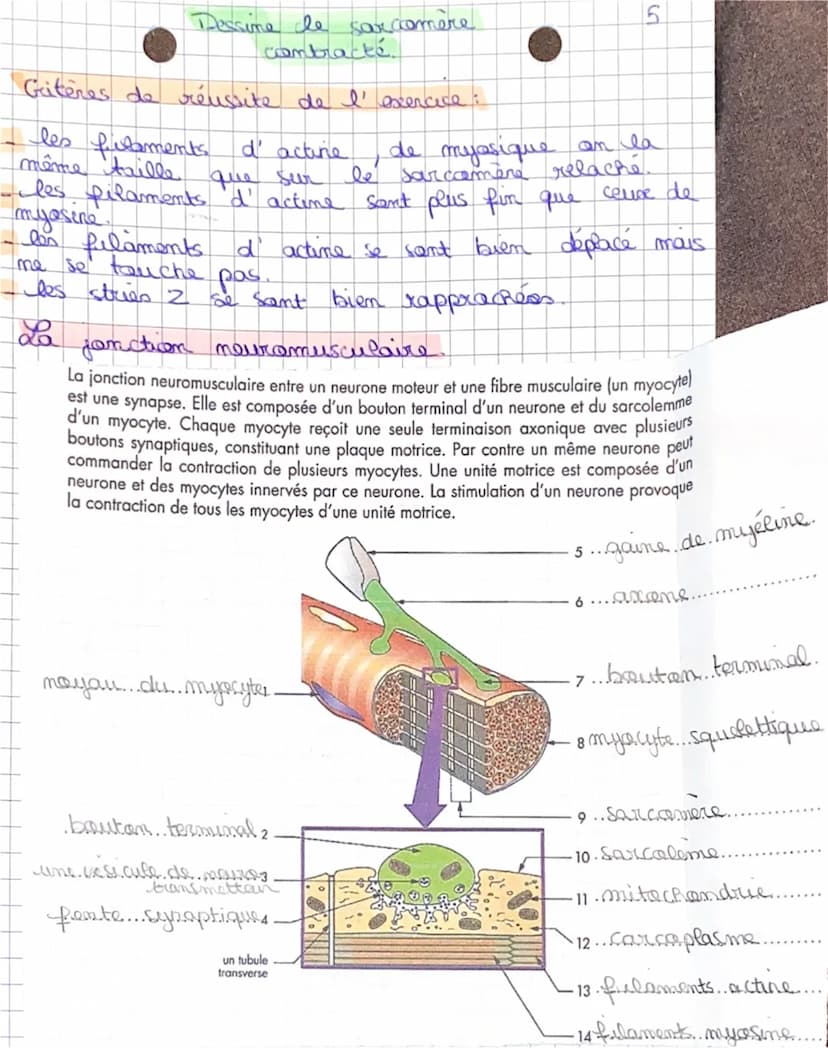 5
Dessine le sarcomère
contracté.
Critères de réussite de l'exercice :
- les filaments d'actine, de myosique on la
même taille que sur le sarcomère relaché.
- les filaments d'actine sont plus fin que ceux de
myosine.
- les filaments d'actine se sont bien déplacé mais
ne se touche pas.
- les stries Z se sont bien rapprochées.
La jonction neuromusculaire.
La jonction neuromusculaire entre un neurone moteur et une fibre musculaire (un myocyte)
est une synapse. Elle est composée d'un bouton terminal d'un neurone et du sarcolemme
d'un myocyte. Chaque myocyte reçoit une seule terminaison axonique avec plusieurs
boutons synaptiques, constituant une plaque motrice. Par contre un même neurone peut
commander la contraction de plusieurs myocytes. Une unité motrice est composée d'un
neurone et des myocytes innervés par ce neurone. La stimulation d'un neurone provoque
la contraction de tous les myocytes d'une unité motrice.
5 gaine de myéline.
6 axone
7 bouton terminal.
noyau du myocyte 1
8 myocyte squelettique
9 sarcomère
bouton terminal 2
10 sarcolème
une vésicule de neuro 3
transmetteur
11 mitochondrie
fente synaptique 4
12 carcoplasme
un tubule
transverse
13 filaments actine
14 filaments myosine